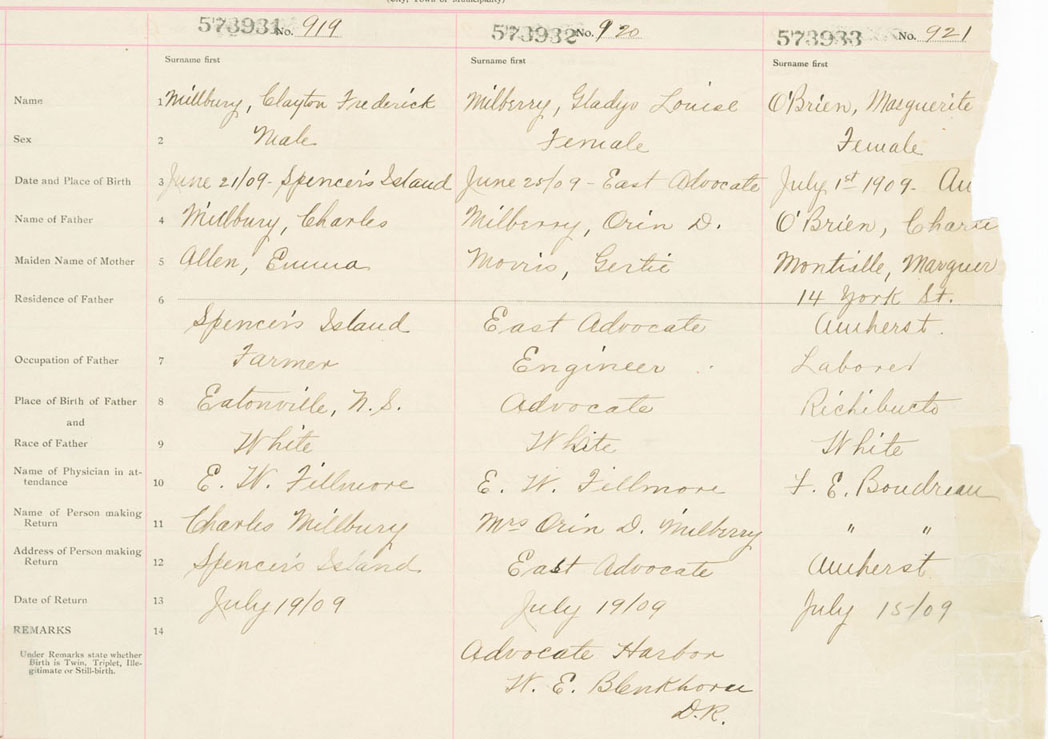 573931 No. 919 573932 No. 920 573933 No. 921
Surname first Surname first Surname first
Name 1 Millbury, Clayton Frederick Milberry, Gladys Louise O'Brien, Marguerite
Sex 2 Male Female Female
Date and Place of Birth 3 June 21/09 - Spencer's Island June 20/09 - East Advocate July 1st 1909 -
Name of Father 4 Millbury, Charles Milberry, Orin D. O'Brien,
Maiden Name of Mother 5 Allen, Emma Morris, Gertie
Residence of Father 6 14 York St.
Spencer's Island East Advocate Amherst.
Occupation of Father 7 Farmer Engineer Laborer
Place of Birth of Father 8 Eatonville, N.S. Advocate Richibucto
and
Race of Father 9 White White White
Name of Physician in at-
tendance 10 E. W. Fillmore E. W. Fillmore F. E. Boudreau
Name of Person making
Return 11 Charles Millbury Mrs Orin D. Milberry " "
Address of Person making
Return 12 Spencer's Island East Advocate Amherst
Date of Return 13 July 19/09 July 19/09 July 15/09
REMARKS 14
Under Remarks state whether
Birth is Twin, Triplet, Ille-
gitimate or Still-birth.
Advocate Harbor
W. E. Blenkhorn
D.R.